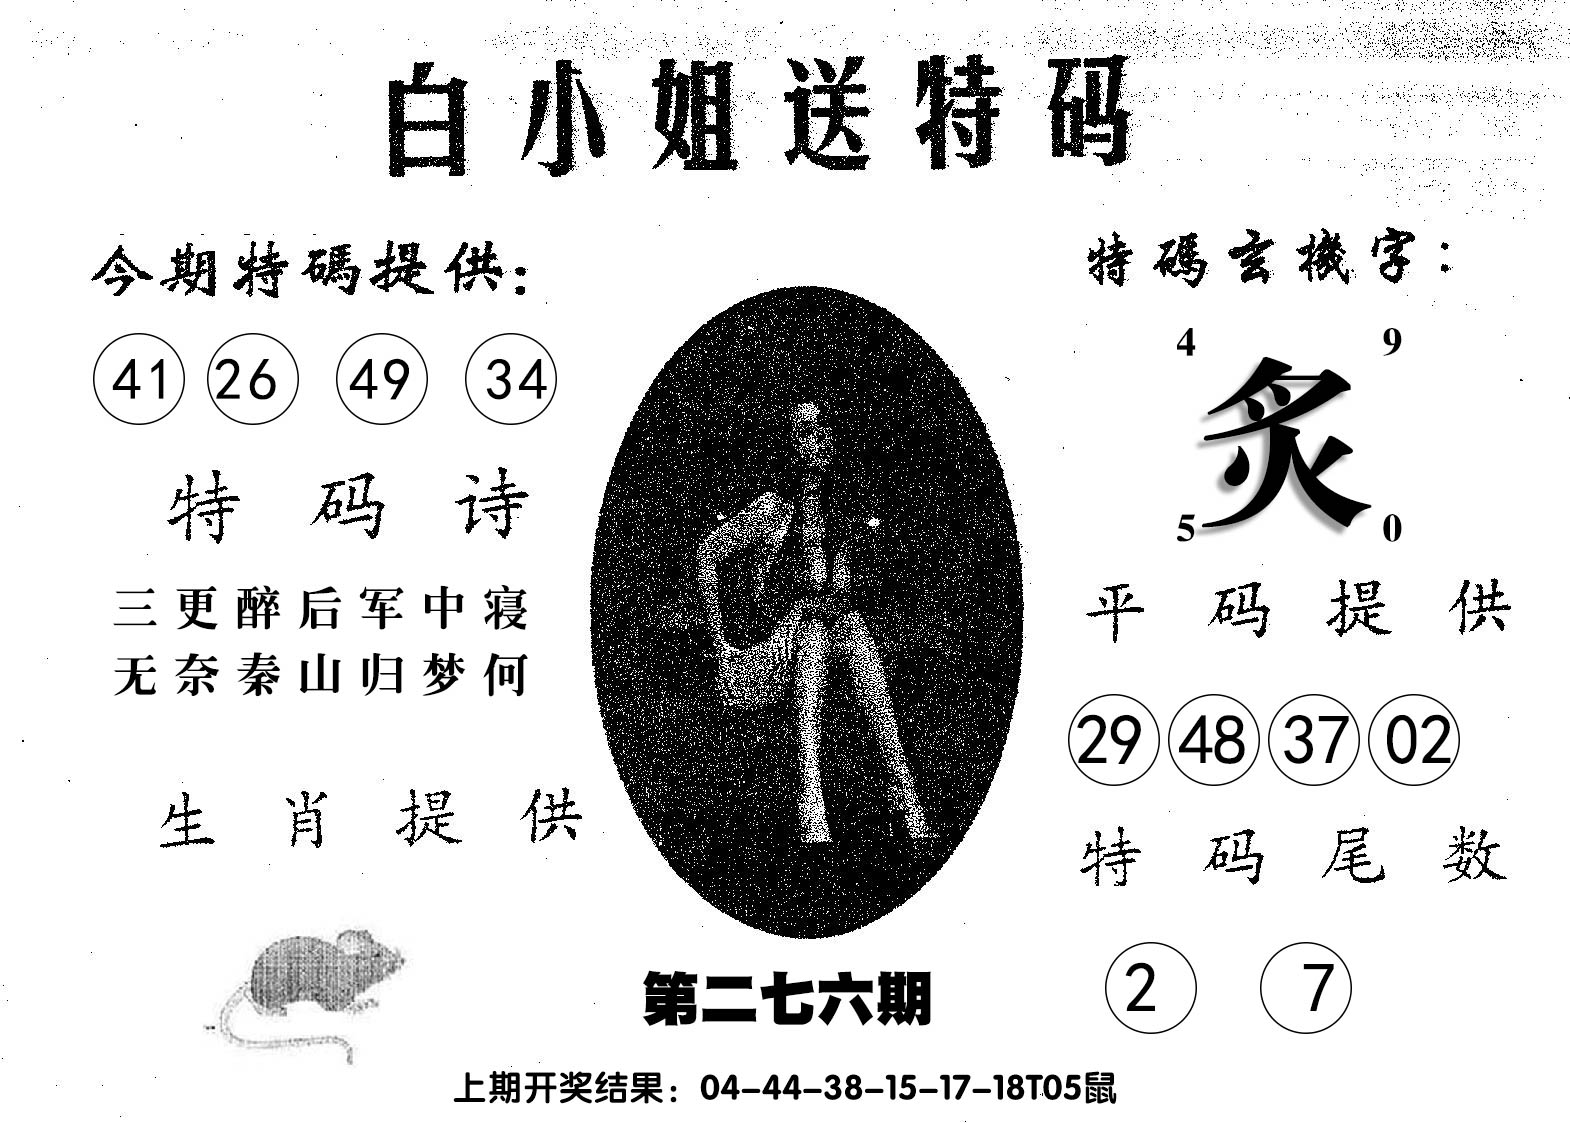 白小姐送特码
今期特碼提供：
41 26 49 34
特码诗
三更醉后军中寝
无奈秦山归梦何
生肖提供
特碼玄機字：
4 9
炙
5 0
平码提供
29 48 37 02
特码尾数
2 7
第二七六期
上期开奖结果：04-44-38-15-17-18T05鼠